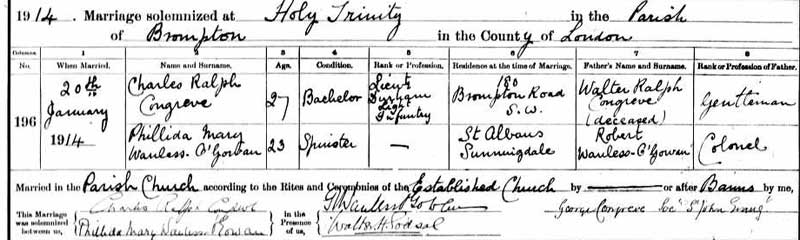 1914. Marriage solemnized at Holy Trinity in the Parish
of Brompton in the County of London
Columns. 1 2 3 4 5 6 7 8
No. When Married. Name and Surname. Age. Condition. Rank or Profession. Residence at the time of Marriage. Father's Name and Surname. Rank or Profession of Father.
196 20th January 1914 Charles Ralph Congreve 27 Bachelor Lieut Durham Light Infantry 180 Brompton Road S.W. Walter Ralph Congreve (deceased) Gentleman
Phillida Mary Wauless-O'Gowan 23 Spinster — St Albans Sunningdale Robert Wauless-O'Gowan Colonel
Married in the Parish Church according to the Rites and Ceremonies of the Established Church by ——— or after Banns by me,
This Marriage was solemnized between us, Charles Ralph Congreve Phillida Mary Wauless O'Gowan In the Presence of us, Walter H. George Congreve